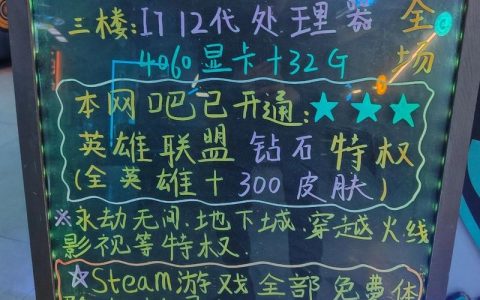 三楼:I7 12代处理器
全场
4060显卡+32G
本网吧已开通:★★★
英雄联盟钻石特权
(全英雄+300皮肤)
※永劫无间.地下城.穿越火线
影视等特权.
☆Steam游戏全部免费体